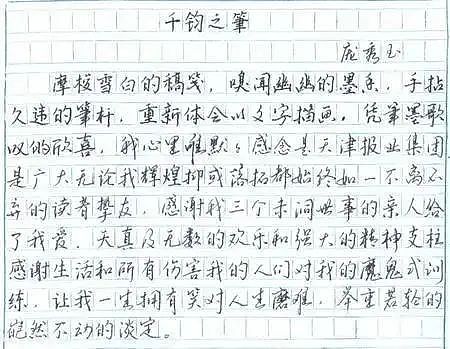 千钧之筆
庞秀玉
摩梭雪白的稿笺，嗅闻幽幽的墨香，手拈
久违的筆杆，重新体会以文字描画，凭筆墨歌
叹的欣喜，我心里唯默：感念是天津报业集团
是广大无论我辉煌抑或落拓都始终如一不离不
弃的读者挚友，感谢我三个未洞世事的亲人给
了我爱、天真及无数的欢乐和强大的精神支柱
感谢生活和所有伤害我的人们对我的魔鬼式训
练，让我一生拥有笑对人生磨难，举重若轻的
岿然不动的淡定。